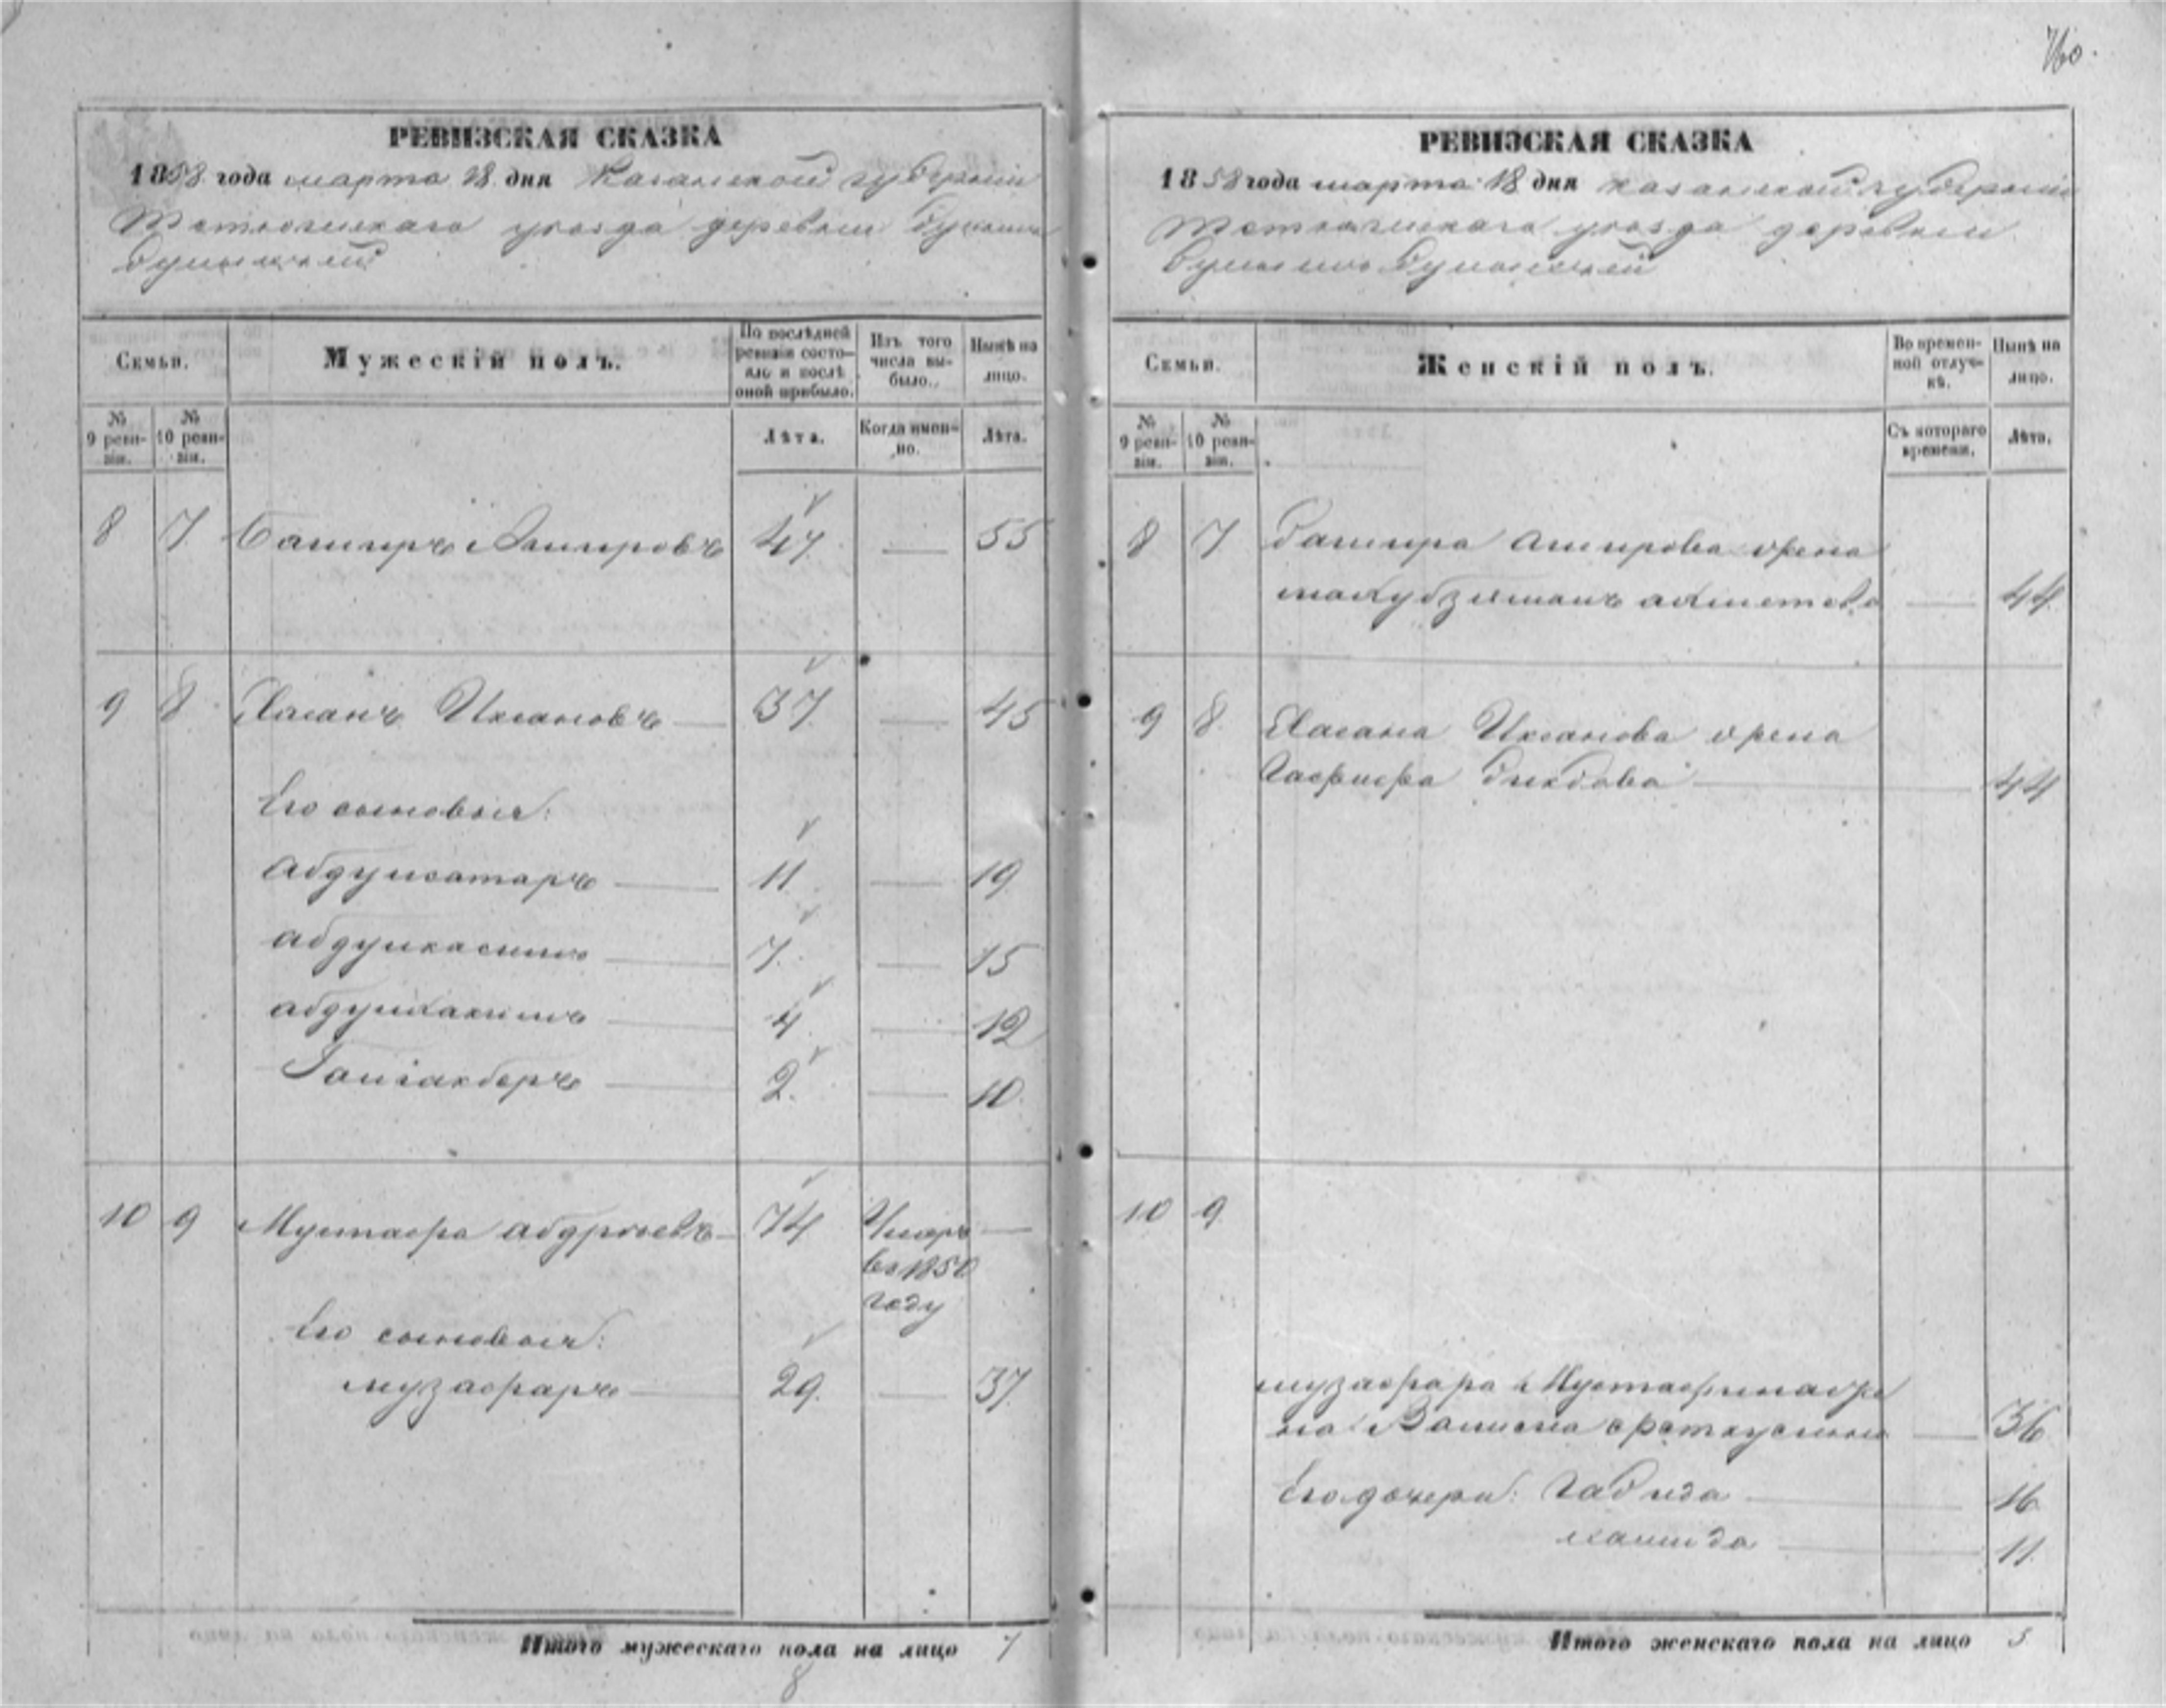 760.
РЕВИЗСКАЯ СКАЗКА
1858 года марта 18 дня Казанской губернии
уезда деревни
Семьи.
Мужескій полъ.
По послѣдней ревизіи состо-
яло и послѣ оной прибыло.
Изъ того числа вы-
было.
Нынѣ на лицо.
№ 9 реви-
зіи.
№ 10 реви-
зіи.
Лѣта.
Когда имен-
но.
Лѣта.
8 7 Баширъ Амировъ 47 — 55
9 8 Хасанъ Ихсановъ — 37 — 45
Его сыновья:
абдулсатаръ — 11 — 19
абдулкасимъ — 7 — 15
абдулхакимъ — 4 — 12
Галиакберъ — 2 — 10
10 9 Мустафа 74 Умеръ —
въ 1850
году
Его сыновья:
музафаръ — 29 — 37
Итого мужескаго пола на лицо 7
8
РЕВИЗСКАЯ СКАЗКА
1858 года марта 18 дня казанской губерніи
уезда деревни
Семьи.
Женскій полъ.
Во времен-
ной отлуч-
кѣ.
Нынѣ на лицо.
№ 9 реви-
зіи.
№ 10 реви-
зіи.
Съ котораго времени.
Лѣта.
8 7 Башира Амирова жена
— 44
9 8 Хасана Ихсанова жена
— 44
10 9
музафара Мустафина же
на — 36
Его дочери: Габида — 16
— 11
Итого женскаго пола на лицо 5